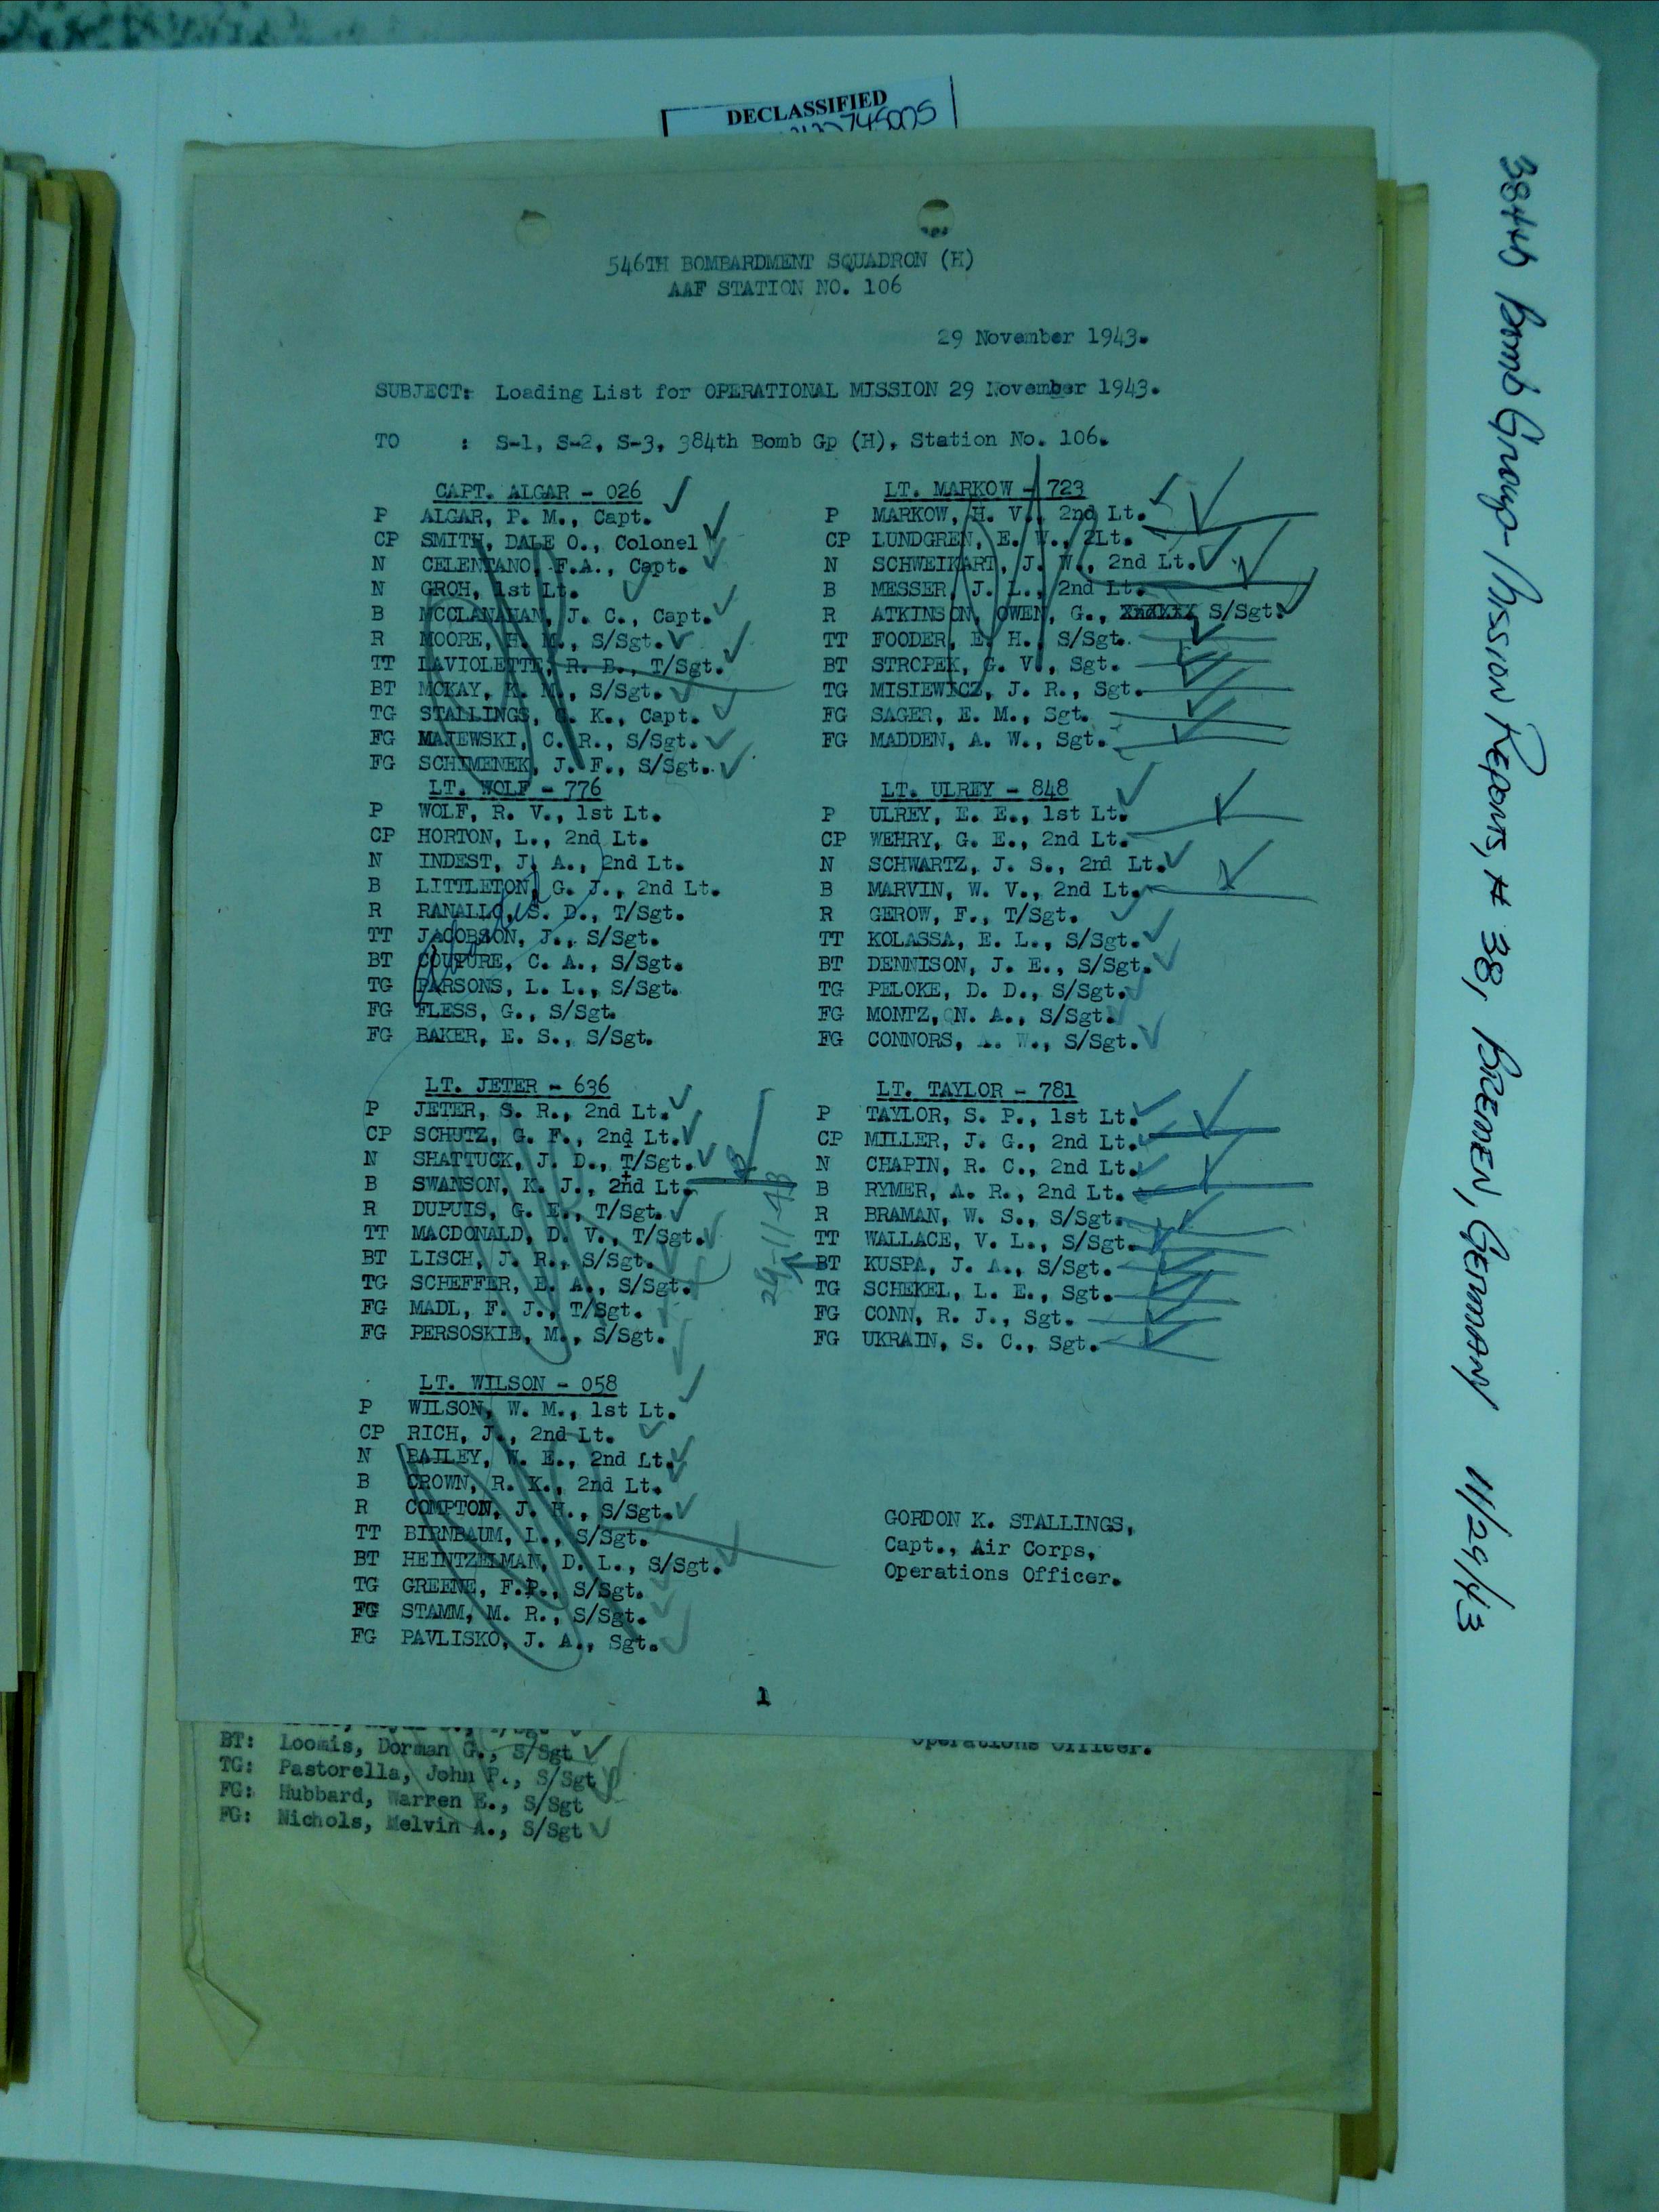 DECLASSIFIED
745005
546TH BOMBARDMENT SQUADRON (H)
AAF STATION NO. 106
29 November 1943.
SUBJECT: Loading List for OPERATIONAL MISSION 29 November 1943.
TO : S-1, S-2, S-3, 384th Bomb Gp (H), Station No. 106.
CAPT. ALGAR - 026
P ALGAR, P. M., Capt.
CP SMITH, DALE O., Colonel
N CELENTANO, F.A., Capt.
N GROH, 1st Lt.
B MCCLANAHAN, J. C., Capt.
R MOORE, H. M., S/Sgt.
TT LAVIOLETTE, R. B., T/Sgt.
BT MCKAY, K. M., S/Sgt.
TG STALLINGS, G. K., Capt.
FG MAJEWSKI, C. R., S/Sgt.
FG SCHIMENEK, J. F., S/Sgt.
LT. MARKOW - 723
P MARKOW, H. V., 2nd Lt.
CP LUNDGREN, E. W., 2Lt.
N SCHWEIKART, J. W., 2nd Lt.
B MESSER, J. L., 2nd Lt.
R ATKINSON, OWEN, G., S/Sgt.
TT FOODER, E. H., S/Sgt.
BT STROPEK, G. V., Sgt.
TG MISIEWICZ, J. R., Sgt.
FG SAGER, E. M., Sgt.
FG MADDEN, A. W., Sgt.
LT. WOLF - 776
P WOLF, R. V., 1st Lt.
CP HORTON, L., 2nd Lt.
N INDEST, J. A., 2nd Lt.
B LITTLETON, G. J., 2nd Lt.
R RANALLO, S. D., T/Sgt.
TT JACOBSON, J., S/Sgt.
BT COUTURE, C. A., S/Sgt.
TG PARSONS, L. L., S/Sgt.
FG FLESS, G., S/Sgt.
FG BAKER, E. S., S/Sgt.
LT. ULREY - 848
P ULREY, E. E., 1st Lt.
CP WEHRY, G. E., 2nd Lt.
N SCHWARTZ, J. S., 2nd Lt.
B MARVIN, W. V., 2nd Lt.
R GEROW, F., T/Sgt.
TT KOLASSA, E. L., S/Sgt.
BT DENNISON, J. E., S/Sgt.
TG PELOKE, D. D., S/Sgt.
FG MONTZ, N. A., S/Sgt.
FG CONNORS, A. W., S/Sgt.
LT. JETER - 636
P JETER, S. R., 2nd Lt.
CP SCHUTZ, G. F., 2nd Lt.
N SHATTUCK, J. D., T/Sgt.
B SWANSON, K. J., 2nd Lt.
R DUPUIS, G. E., T/Sgt.
TT MACDONALD, D. V., T/Sgt.
BT LISCH, J. R., S/Sgt.
TG SCHEFFER, E. A., S/Sgt.
FG MADL, F. J., T/Sgt.
FG PERSOSKIE, M., S/Sgt.
LT. TAYLOR - 781
P TAYLOR, S. P., 1st Lt.
CP MILLER, J. G., 2nd Lt.
N CHAPIN, R. C., 2nd Lt.
B RYMER, A. R., 2nd Lt.
R BRAMAN, W. S., S/Sgt.
TT WALLACE, V. L., S/Sgt.
BT KUSPA, J. A., S/Sgt.
TG SCHEKEL, L. E., Sgt.
FG CONN, R. J., Sgt.
FG UKRAIN, S. C., Sgt.
LT. WILSON - 058
P WILSON, W. M., 1st Lt.
CP RICH, J., 2nd Lt.
N BAILEY, W. E., 2nd Lt.
B CROWN, R. K., 2nd Lt.
R COMPTON, J. H., S/Sgt.
TT BIRNBAUM, L., S/Sgt.
BT HEINTZELMAN, D. L., S/Sgt.
TG GREENE, F.P., S/Sgt.
FG STAMM, M. R., S/Sgt.
FG PAVLISKO, J. A., Sgt.
GORDON K. STALLINGS,
Capt., Air Corps,
Operations Officer.
1
Operations Officer.
BT: Loomis, Dorman G., S/Sgt
TG: Pastorella, John P., S/Sgt
FG: Hubbard, Warren E., S/Sgt
FG: Nichols, Melvin A., S/Sgt
384th Bomb Group - Mission Reports, # 38, BREMEN, GERMANY 11/29/43